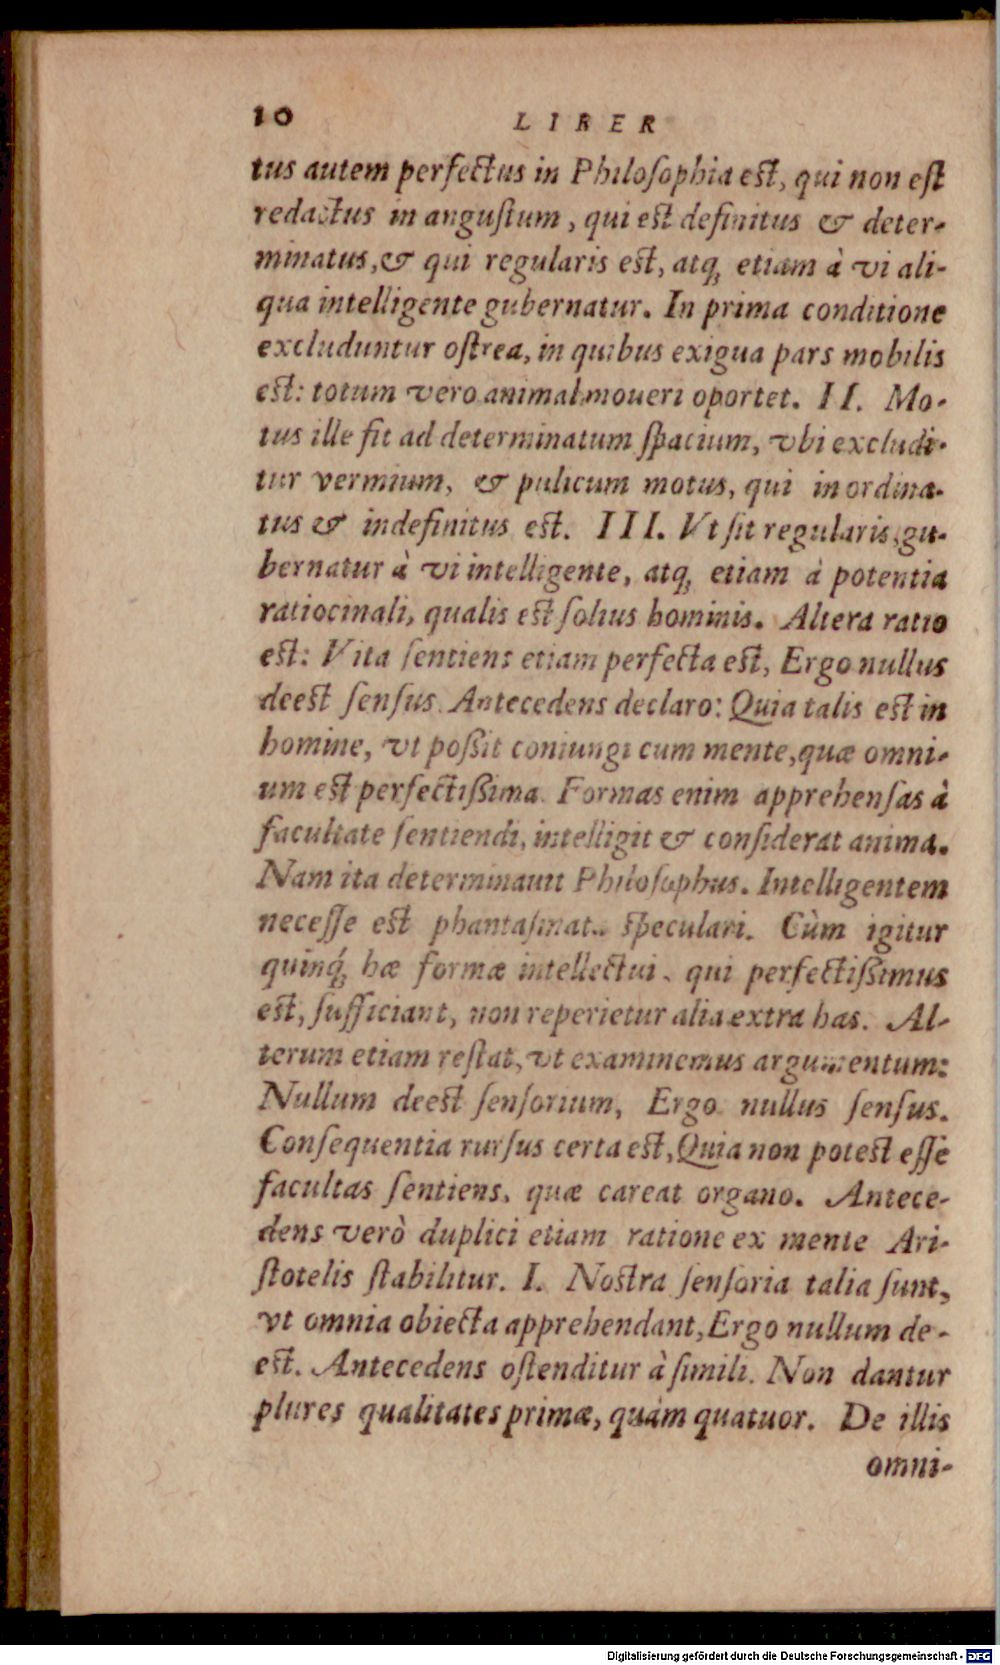 10 LIBER
tus autem perfectus in Philoſophia eſt, qui non eſt
redactus in anguſtum, qui eſt definitus & deter-
minatus, & qui regularis eſt, atq́; etiam à vi ali-
qua intelligente gubernatur. In prima conditione
excluduntur oſtrea, in quibus exigua pars mobilis
eſt: totum vero animal moueri oportet. II. Mo-
tus ille fit ad determinatum ſpacium, vbi excludi-
tur vermium, & pulicum motus, qui inordina-
tus & indefinitus eſt. III. Vt ſit regularis, gu-
bernatur à vi intelligente, atq́; etiam à potentia
ratiocinali, qualis eſt ſolius hominis. Altera ratio
eſt: Vita ſentiens etiam perfecta eſt, Ergo nullus
deeſt ſenſus. Antecedens declaro: Quia talis eſt in
homine, vt poßit coniungi cum mente, quæ omni-
um eſt perfectißima. Formas enim apprehenſas à
facultate ſentiendi, intelligit & conſiderat anima.
Nam ita determinauit Philoſophus. Intelligentem
neceſſe eſt phantaſmata ſpeculari. Cùm igitur
quinq́; hæ formæ intellectui, qui perfectißimus
eſt, ſufficiant, non reperietur alia extra has. Al-
terum etiam reſtat, vt examinemus argumentum:
Nullum deeſt ſenſorium, Ergo nullus ſenſus.
Conſequentia rurſus certa eſt, Quia non poteſt eſſe
facultas ſentiens, quæ careat organo. Antece-
dens verò duplici etiam ratione ex mente Ari-
ſtotelis ſtabilitur. I. Noſtra ſenſoria talia ſunt,
vt omnia obiecta apprehendant, Ergo nullum de-
eſt. Antecedens oſtenditur à ſimili. Non dantur
plures qualitates primæ, quàm quatuor. De illis
omni-
Digitalisierung gefördert durch die Deutsche Forschungsgemeinschaft - DFG